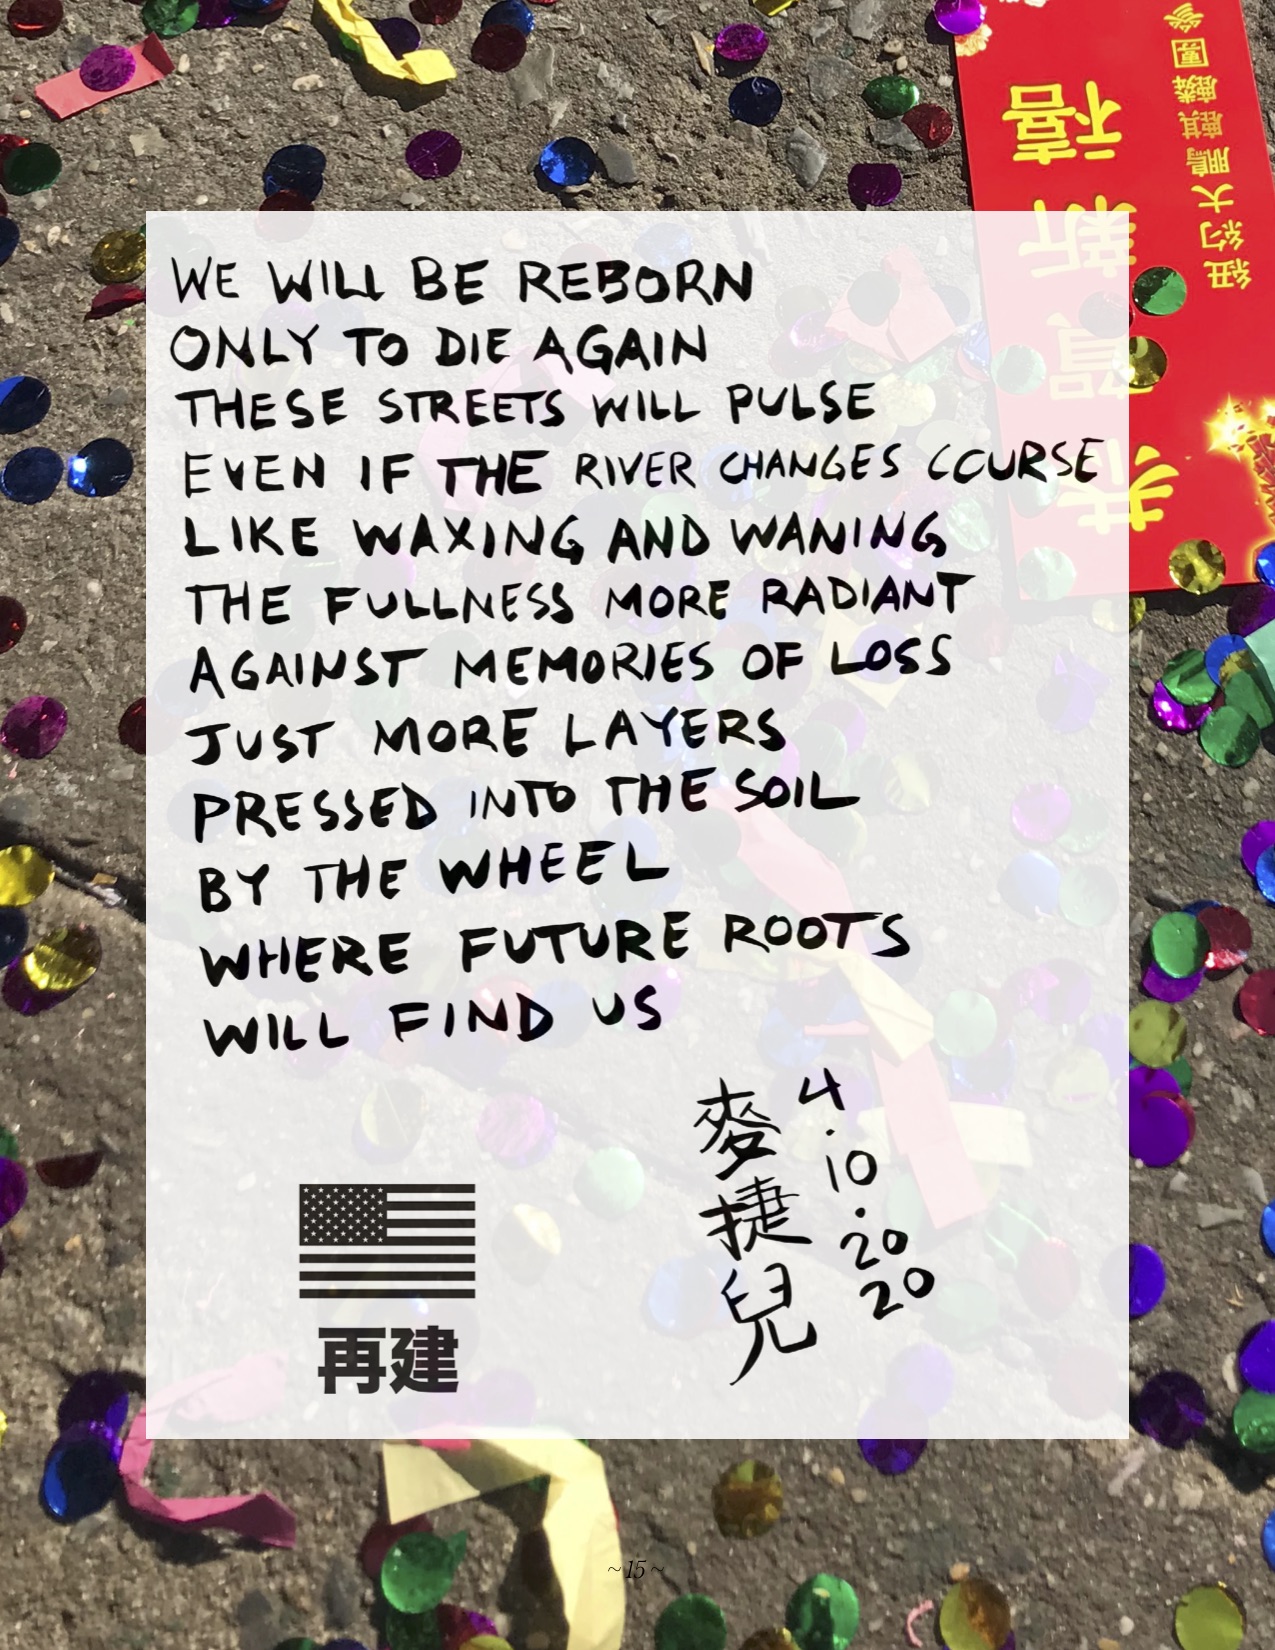 WE WILL BE REBORN
ONLY TO DIE AGAIN
THESE STREETS WILL PULSE
EVEN IF THE RIVER CHANGES COURSE
LIKE WAXING AND WANING
THE FULLNESS MORE RADIANT
AGAINST MEMORIES OF LOSS
JUST MORE LAYERS
PRESSED INTO THE SOIL
BY THE WHEEL
WHERE FUTURE ROOTS
WILL FIND US
麥捷兒
4.10.2020
再建
恭賀新禧
紐約大鵬麒麟團
~15~